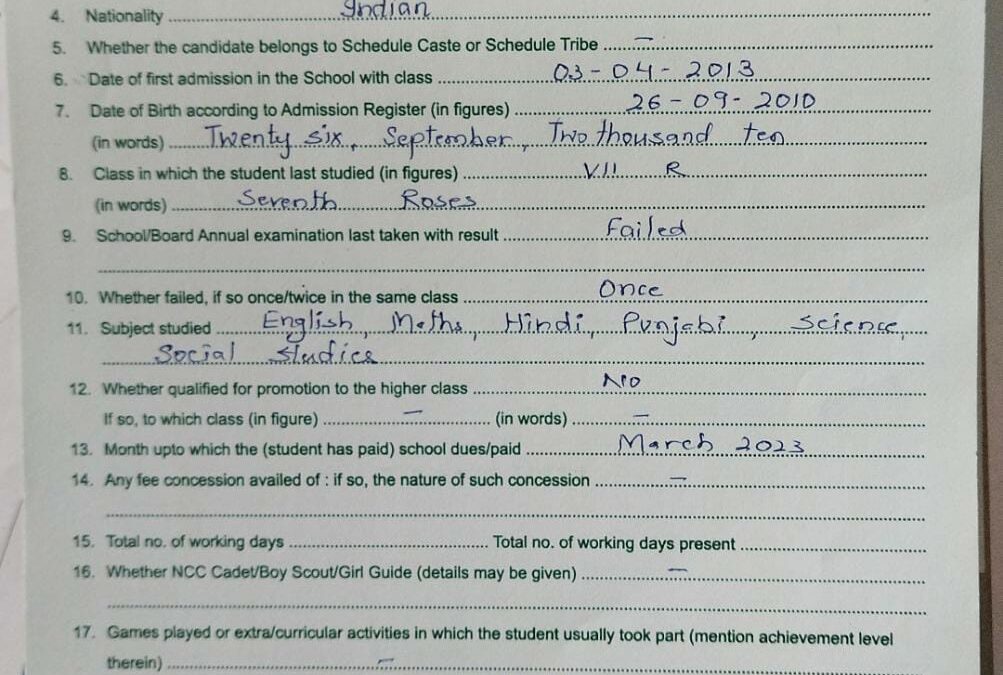 4. Nationality ........ Indian ........
5. Whether the candidate belongs to Schedule Caste or Schedule Tribe ........ – ........
6. Date of first admission in the School with class ........ 03-04-2013 ........
7. Date of Birth according to Admission Register (in figures) ........ 26-09-2010 ........
(in words) ........ Twenty six, September, Two thousand ten ........
8. Class in which the student last studied (in figures) ........ VII R ........
(in words) ........ Seventh Roses ........
9. School/Board Annual examination last taken with result ........ Failed ........
10. Whether failed, if so once/twice in the same class ........ Once ........
11. Subject studied ........ English, Maths, Hindi, Punjabi, Science,
Social Studies ........
12. Whether qualified for promotion to the higher class ........ No ........
If so, to which class (in figure) ........ – ........ (in words) ........ – ........
13. Month upto which the (student has paid) school dues/paid ........ March 2023 ........
14. Any fee concession availed of : if so, the nature of such concession ........ – ........
15. Total no. of working days ........ Total no. of working days present ........
16. Whether NCC Cadet/Boy Scout/Girl Guide (details may be given) ........ – ........
17. Games played or extra/curricular activities in which the student usually took part (mention achievement level
therein) ........ – ........